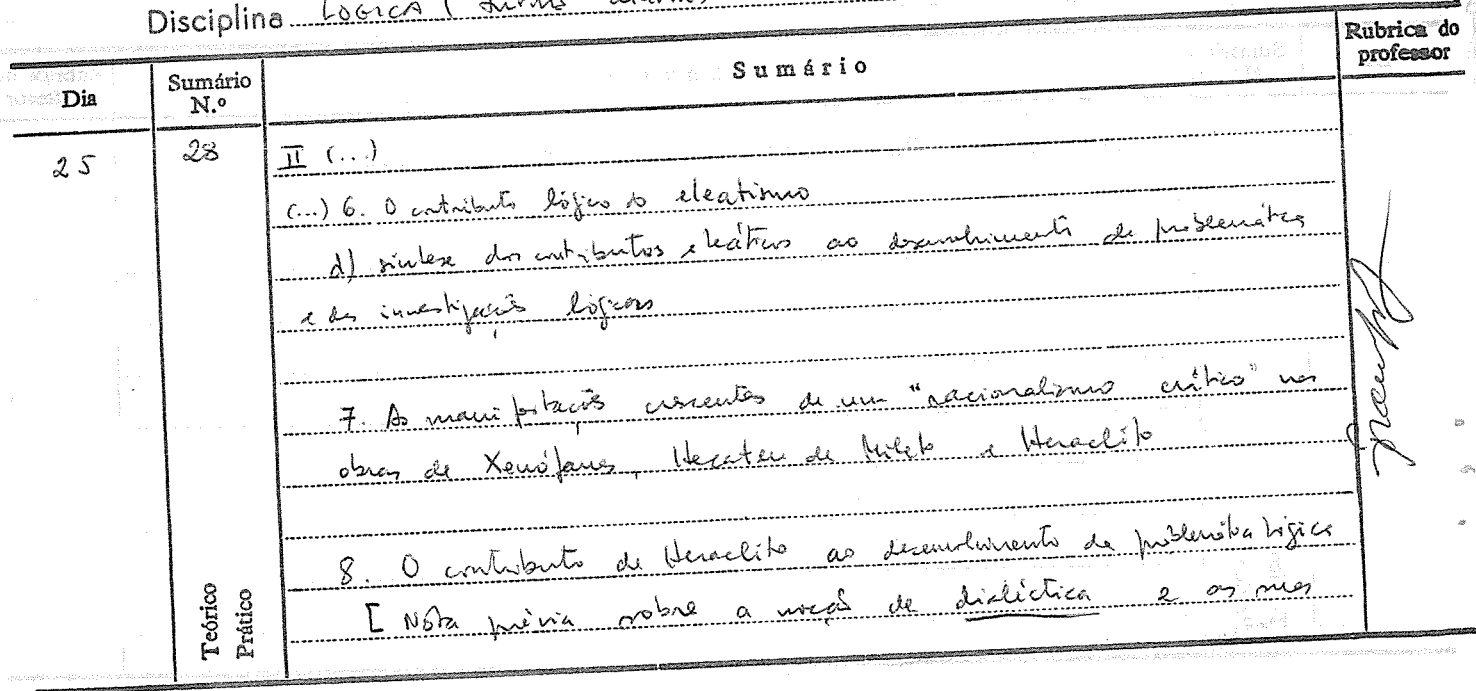 Disciplina LÓGICA (
Dia
Sumário N.º
Sumário
Rubrica do professor
25
28
II (...)
(...) 6. O contributo lógico do eleatismo
d) síntese dos contributos eleáticos ao desenvolvimento da problemática
e das investigações lógicas
7. As manifestações crescentes de um "racionalismo crítico" nas
obras de Xenófanes, Hecateu de Mileto e Heraclito
8. O contributo de Heraclito ao desenvolvimento da problemática lógica
[ Nota prévia sobre a noção de dialéctica e os seus
Teórico
Prático